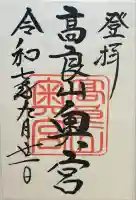 登拝
高良山奥宮
令和七年九月廿一日